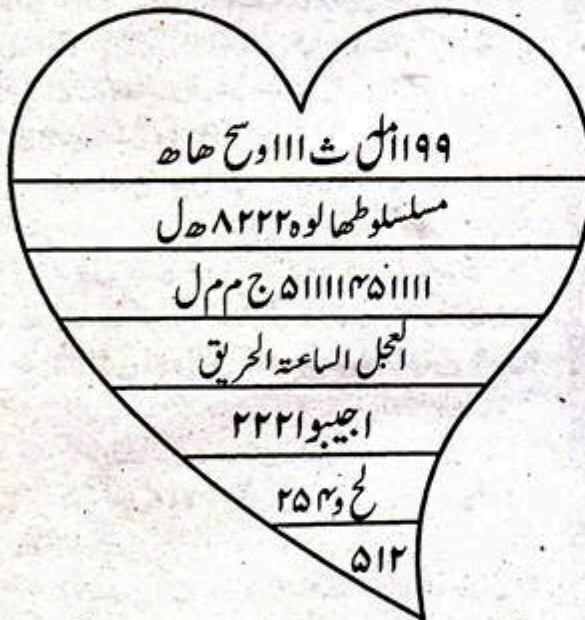 ۱۱۹۹امل ث ۱۱۱ وسح هاھ
مسلسلوطھا لوہ ۸۲۲۲ ھ ل
۵۱۱۱۱۴۵۱۱۱۱ ج م م ل
العجل الساعتہ الحریق
اجیبوا ۲۲۲۱
لح و ۲۵۴
۵۱۲